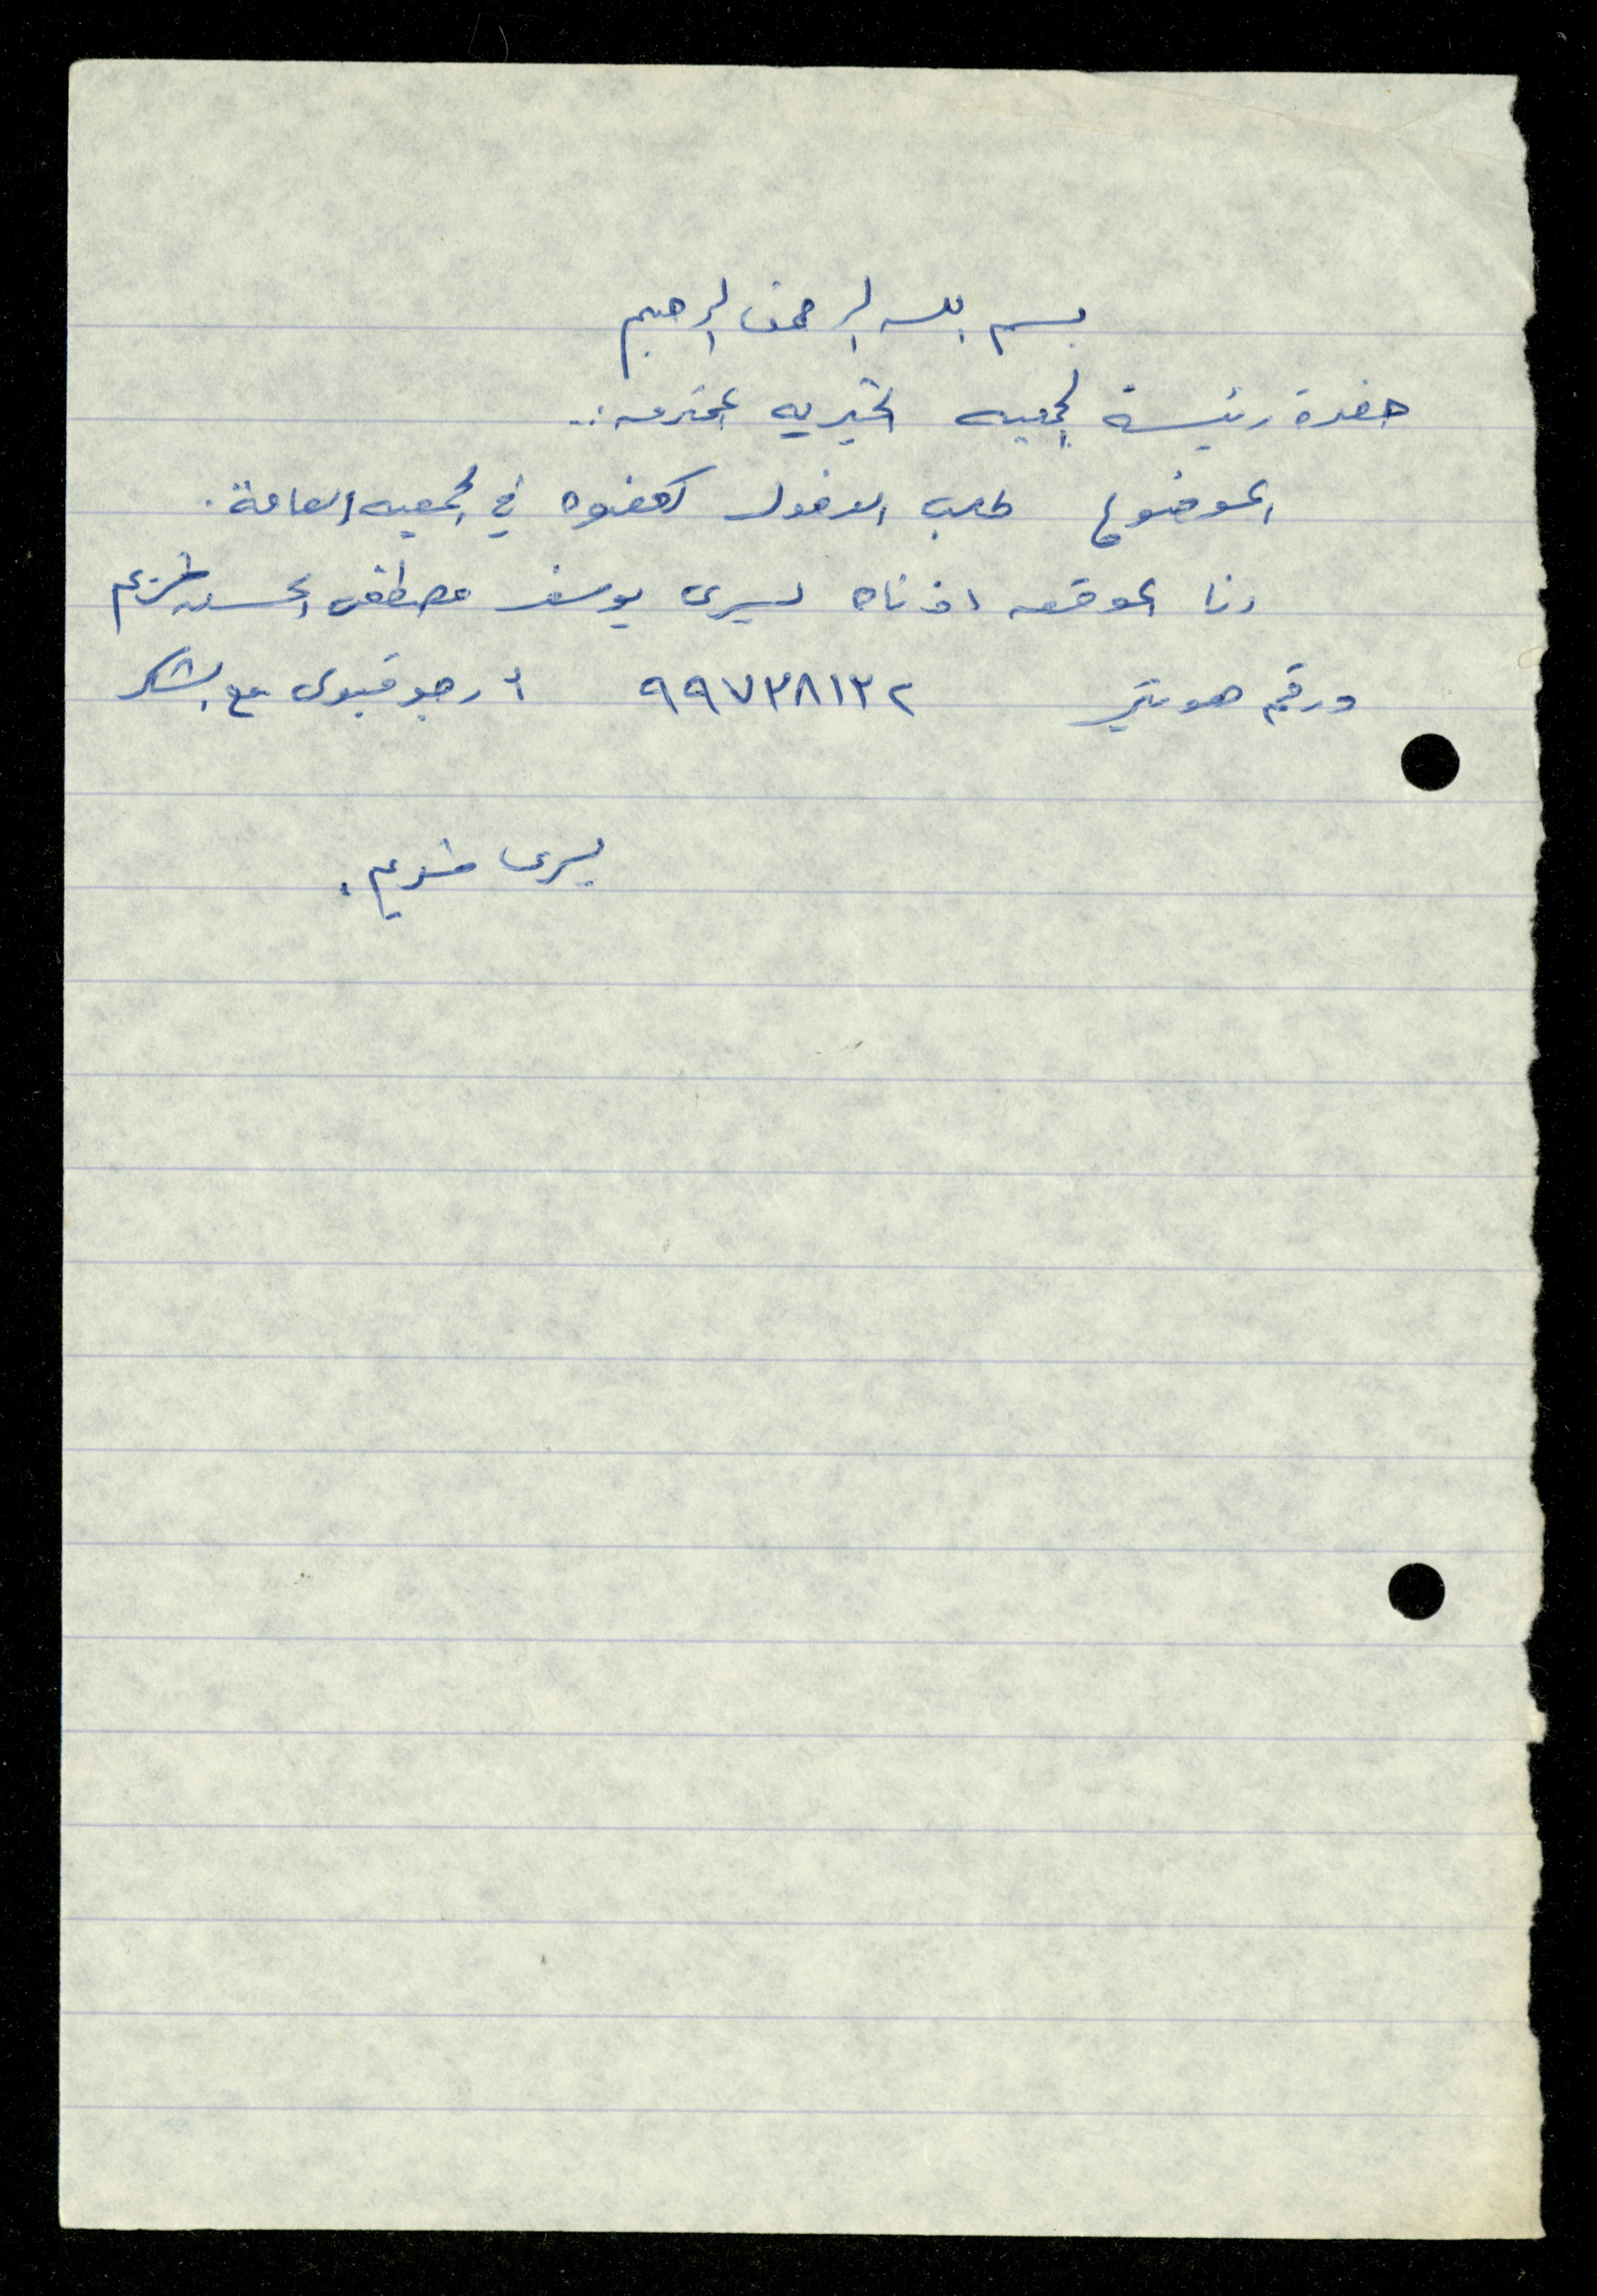 بسم الله الرحمن الرحيم
حضرة رئيسة الجمعيه الخيريه المحترمه :..
الموضوع طلب الدخول كعضوه في الجمعيه العامة .
انا الموقعه ادناه يسرى يوسف مصطفى الحسن خريم
ورقم هويتي ٩٩٧٣٨١٣٢ أرجو قبولي مع الشكر
يسرى خريم .